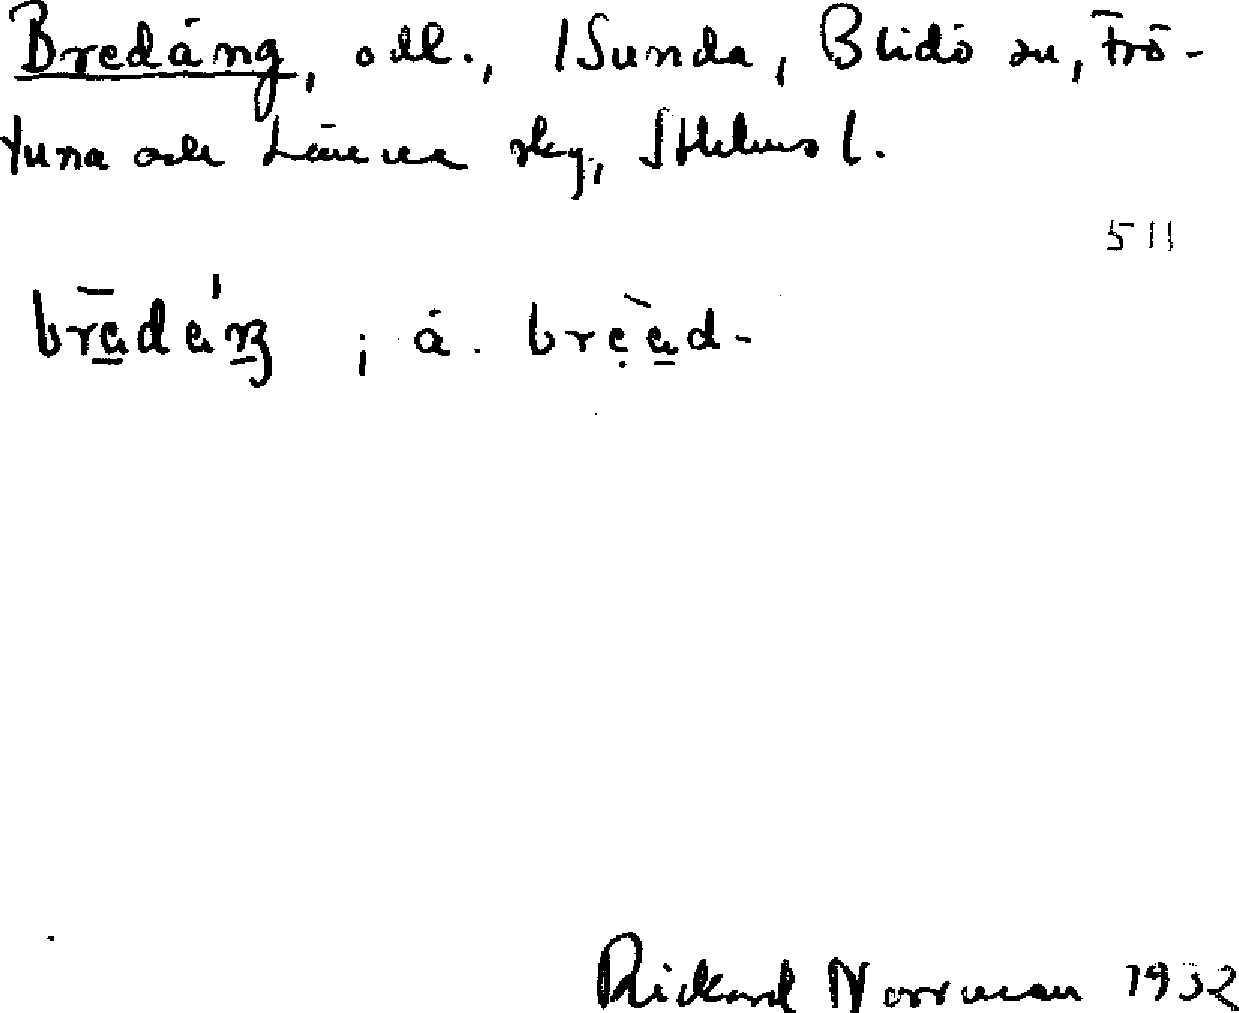 Bredäng, odl., 1Sunda, Blidö sn, Frö-
tuna och Länna skg, Sthlms l.
511
; ä.
Rickard Norrman 1932